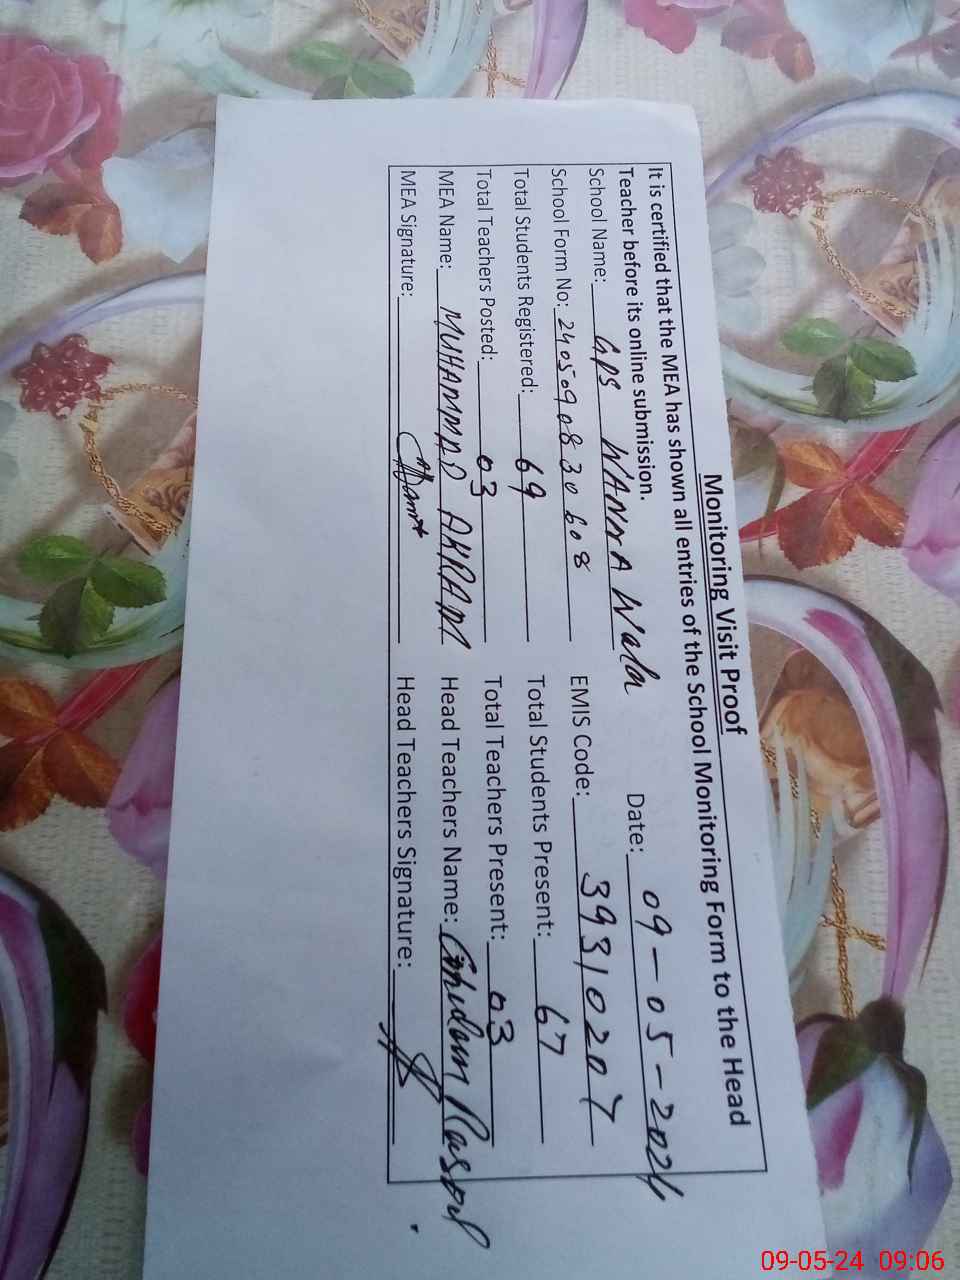 Monitoring Visit Proof
It is certified that the MEA has shown all entries of the School Monitoring Form to the Head
Teacher before its online submission. Date: 09-05-2024
School Name: GPS WANNA Wala
School Form No: 2405090830608 EMIS Code: 39310207
Total Students Registered: 69 Total Students Present: 67
Total Teachers Posted: 03 Total Teachers Present: 03
MEA Name: MUHAMMAD AKRAM Head Teachers Name: Ghulam Rasool
MEA Signature: Head Teachers Signature:
09-05-24 09:06